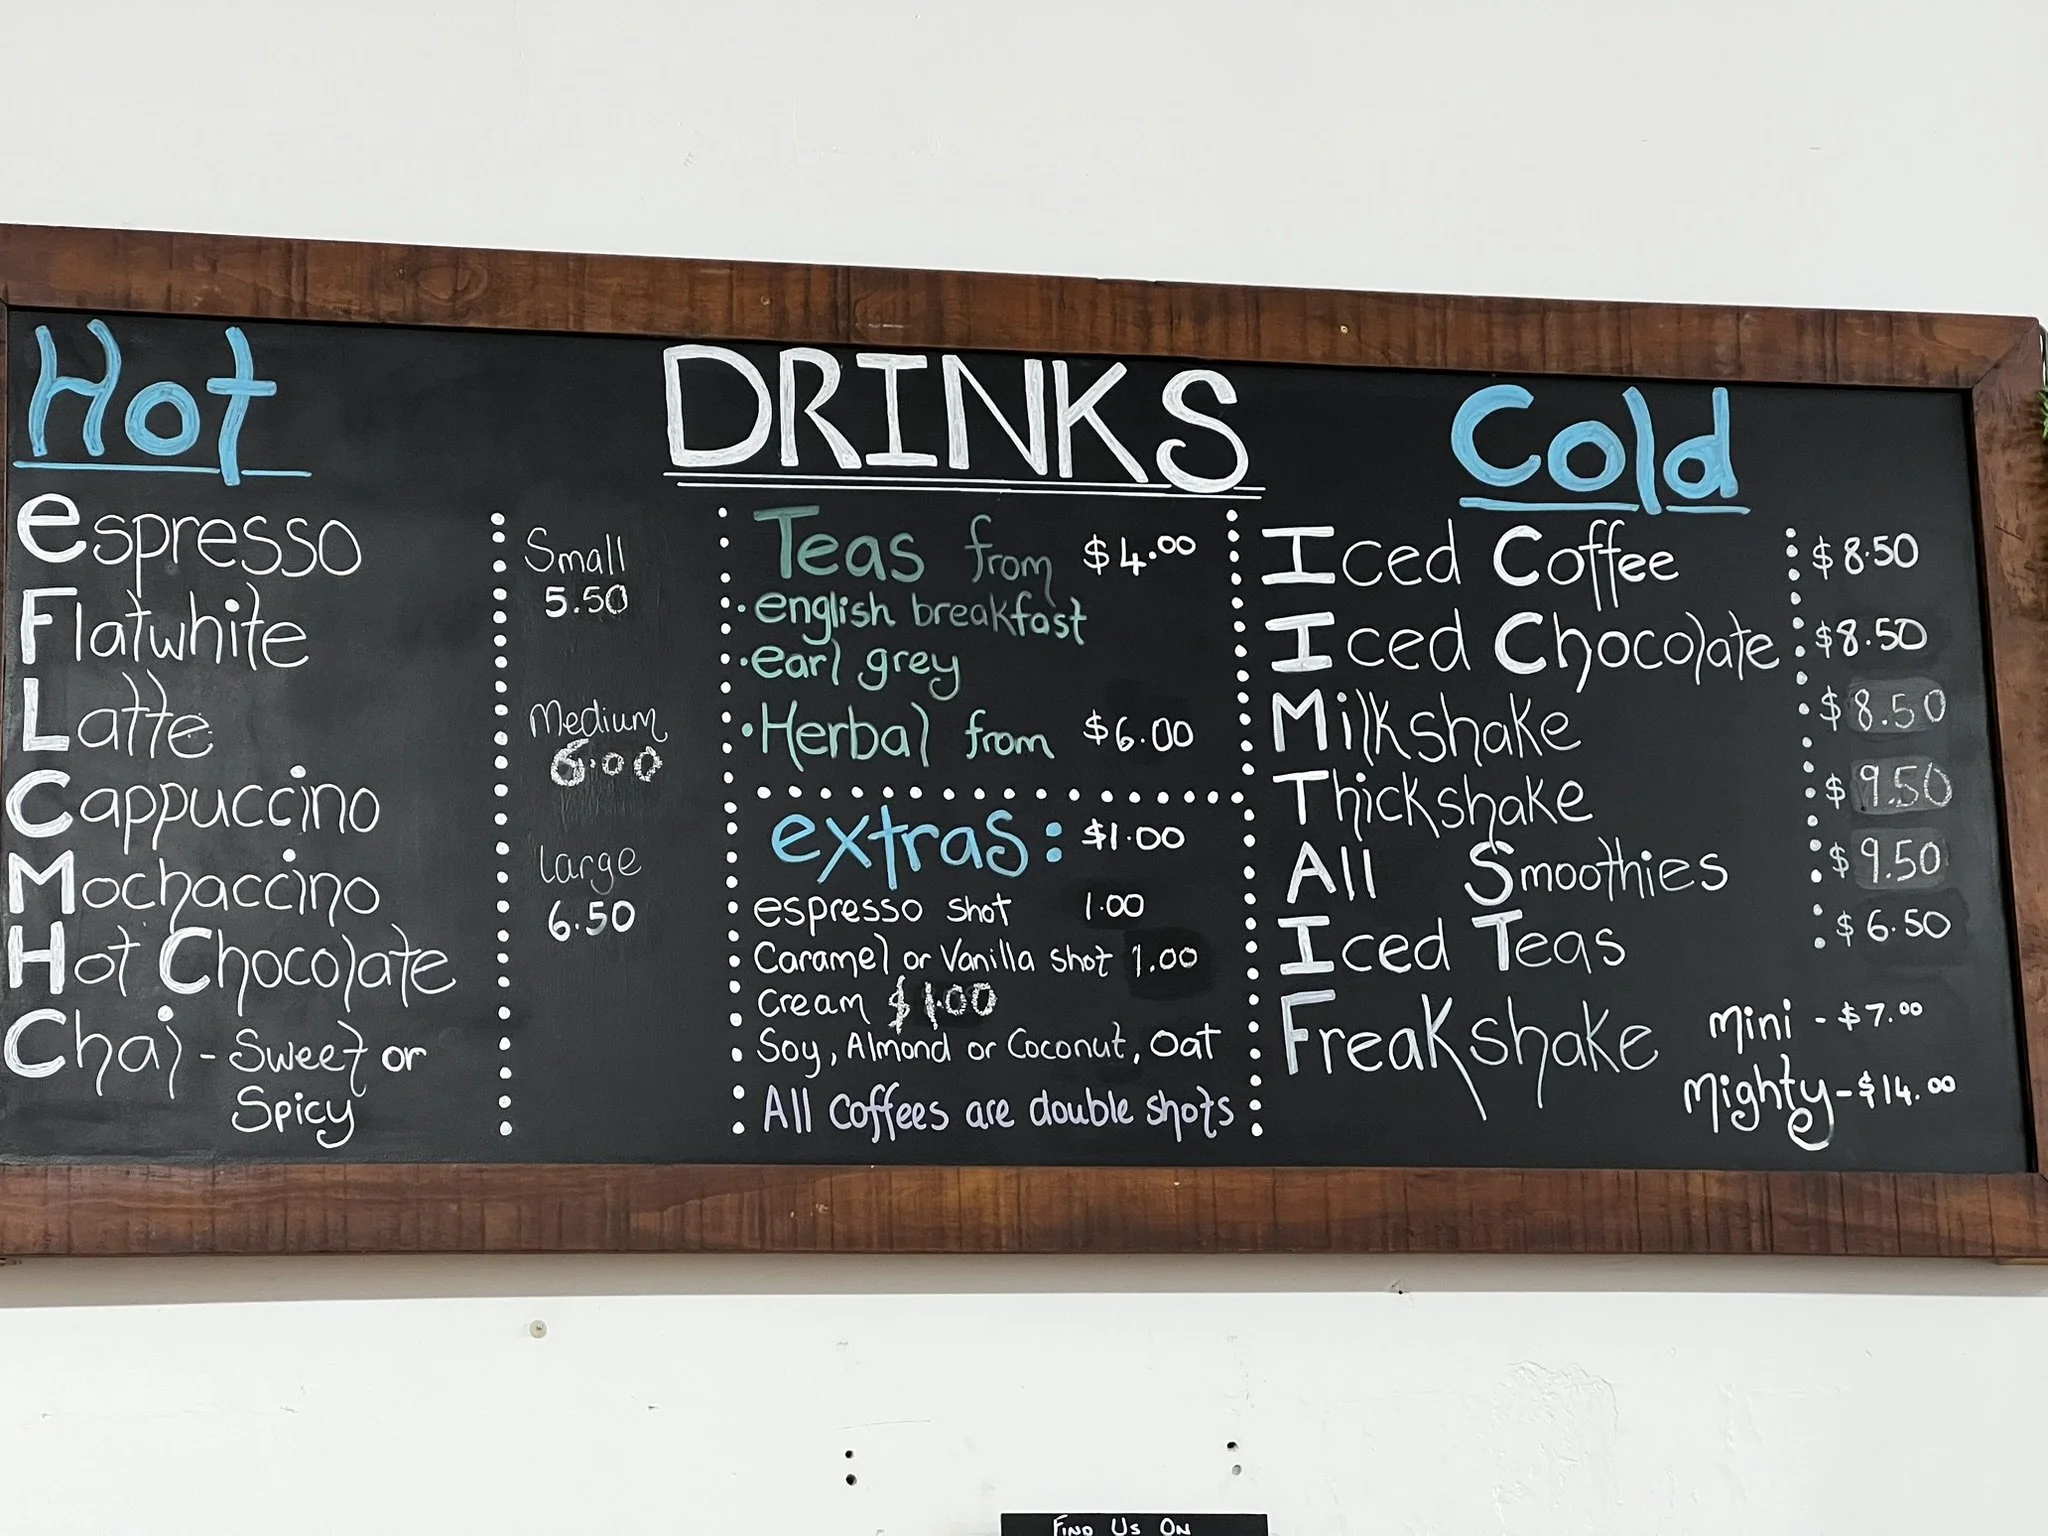 Hot
DRINKS
Cold
espresso
Flatwhite
Latte
Cappuccino
Mochaccino
Hot Chocolate
Chai - Sweet or
Spicy
Small
5.50
Medium
6.00
Large
6.50
Teas from $4.00
• english breakfast
• earl grey
• Herbal from $6.00
extras: $1.00
espresso shot 1.00
Caramel or Vanilla shot 1.00
Cream $1.00
Soy, Almond or Coconut, Oat
All Coffees are double shots
Iced Coffee $8.50
Iced Chocolate $8.50
Milkshake $8.50
Thickshake $9.50
All Smoothies $9.50
Iced Teas $6.50
Freakshake Mini - $7.00
Mighty - $14.00
FIND US ON